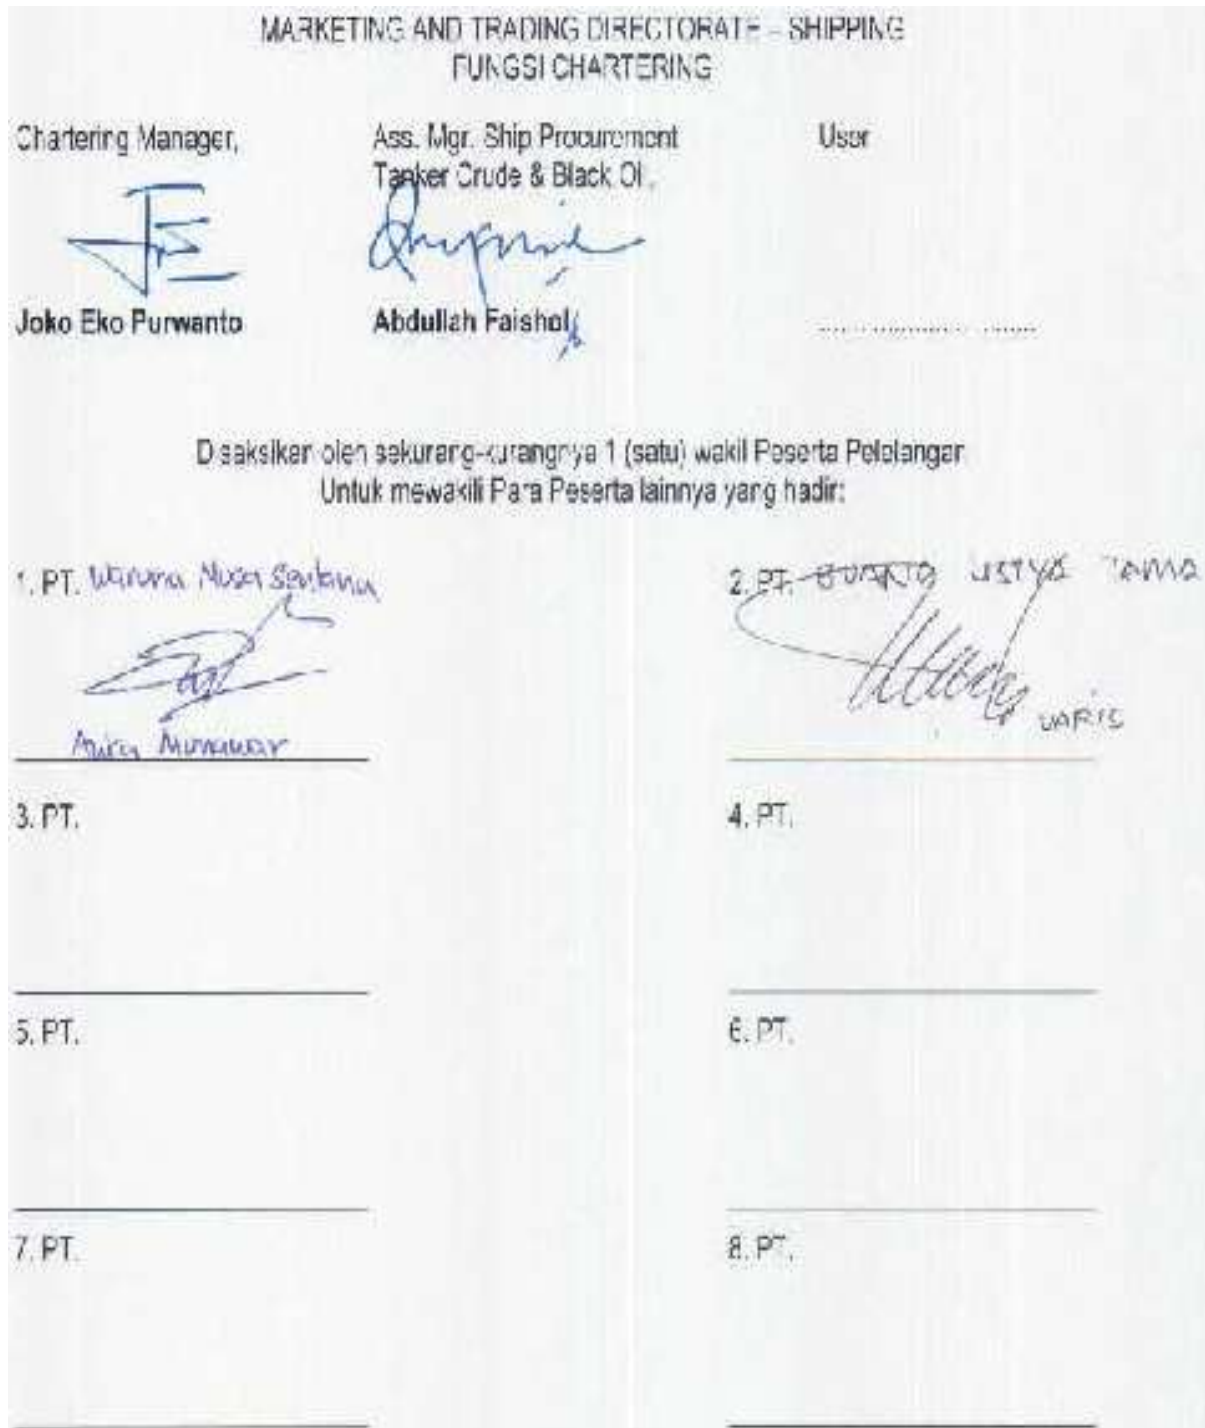 MARKETING AND TRADING DIRECTORATE – SHIPPING
FUNGSI CHARTERING
Chartering Manager,
Ass. Mgr. Ship Procurement
User
Tanker Crude & Black Oil,
Joko Eko Purwanto
Abdullah Faishol
Disaksikan oleh sekurang-kurangnya 1 (satu) wakil Peserta Pelelangan
Untuk mewakili Para Peserta lainnya yang hadir:
1. PT. Waruna Nusa Sentana
2. PT. LISTYA TAMA
Munawar
3. PT.
4. PT.
5. PT.
6. PT.
7. PT.
8. PT.